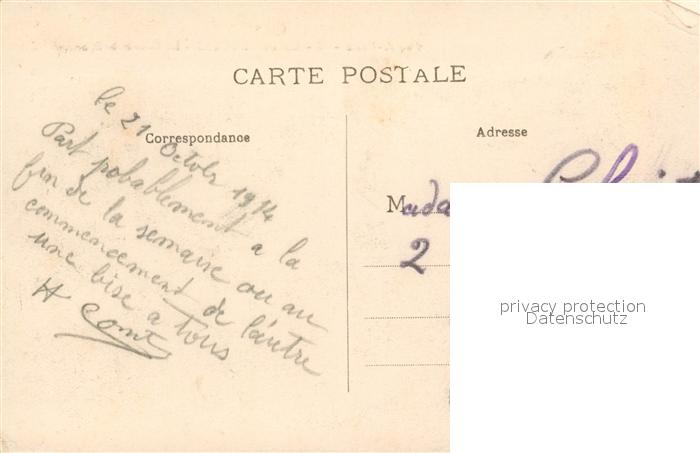 CARTE POSTALE
Correspondance
Adresse
le 21 Octobr 1914
Part pobablement a la
fin de la semaine ou au
commencement de l'autre
une bise a tous
H Comt
Mada
2
privacy protection
Datenschutz